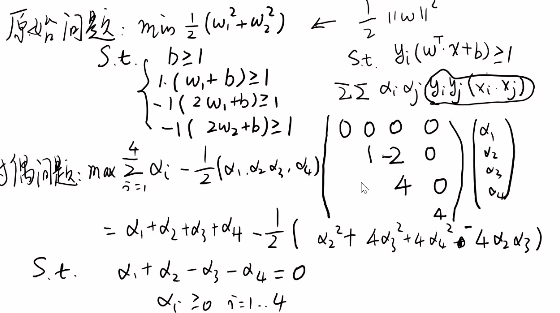 原始问题: min 1/2 (w₁²+w₂²) ← 1/2 ||w||²
S.t. b≥1
1·(w₁+b)≥1
-1(2w₁+b)≥1
-1(2w₂+b)≥1
S.t. yᵢ(wᵀ·x+b)≥1
ΣΣ αᵢαⱼ yᵢyⱼ(xᵢ·xⱼ)
对偶问题: max Σᵢ₌₁⁴ αᵢ - 1/2 (α₁.α₂ α₃,α₄)
0 0 0 0
1 -2 0
4 0
4
α₁
α₂
α₃
α₄
= α₁+α₂+α₃+α₄ - 1/2 ( α₂²+ 4α₃²+4α₄² - 4α₂α₃)
S.t. α₁+α₂-α₃-α₄=0
αᵢ≥0 i=1..4